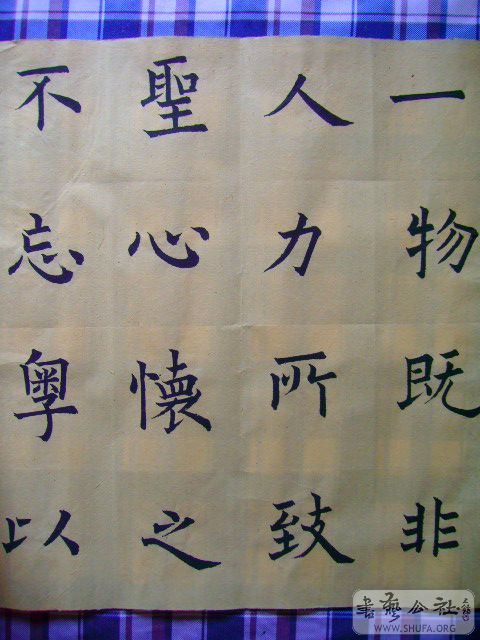 一物既非
人力所致
聖心懷之
不忘粤以
書藝公社
WWW.SHUFA.ORG